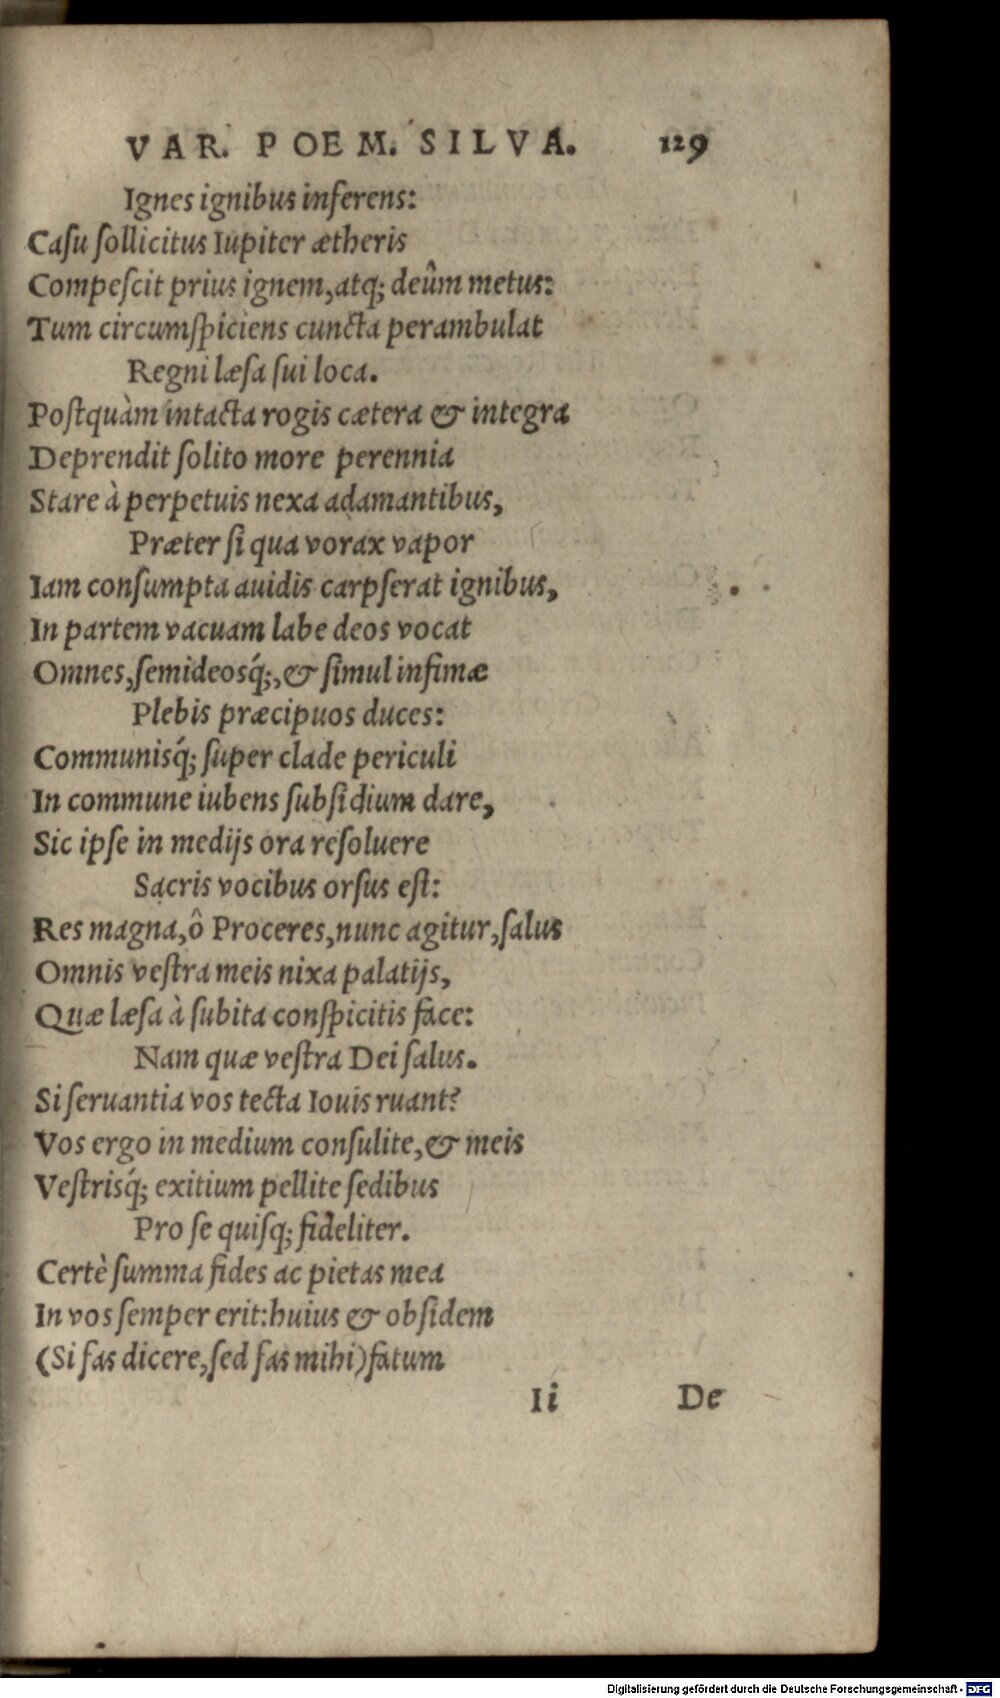 VAR. POEM. SILVA. 129
Ignes ignibus inferens:
Casu sollicitus Iupiter ætheris
Compescit prius ignem, atq; deûm metus:
Tum circumspiciens cuncta perambulat
Regni læsa sui loca.
Postquàm intacta rogis cætera & integra
Deprendit solito more perennia
Stare à perpetuis nexa adamantibus,
Præter si qua vorax vapor
Iam consumpta auidis carpserat ignibus,
In partem vacuam labe deos vocat
Omnes, semideosq́;, & simul infimæ
Plebis præcipuos duces:
Communisq́; super clade periculi
In commune iubens subsidium dare,
Sic ipse in medijs ora resoluere
Sacris vocibus orsus est:
Res magna, ô Proceres, nunc agitur, salus
Omnis vestra meis nixa palatijs,
Quæ læsa à subita conspicitis face:
Nam quæ vestra Dei salus.
Si seruantia vos tecta Iouis ruant?
Vos ergo in medium consulite, & meis
Vestrisq́; exitium pellite sedibus
Pro se quisq; fideliter.
Certè summa fides ac pietas mea
In vos semper erit: huius & obsidem
(Si fas dicere, sed fas mihi) fatum
Ii De
Digitalisierung gefördert durch die Deutsche Forschungsgemeinschaft - DFG